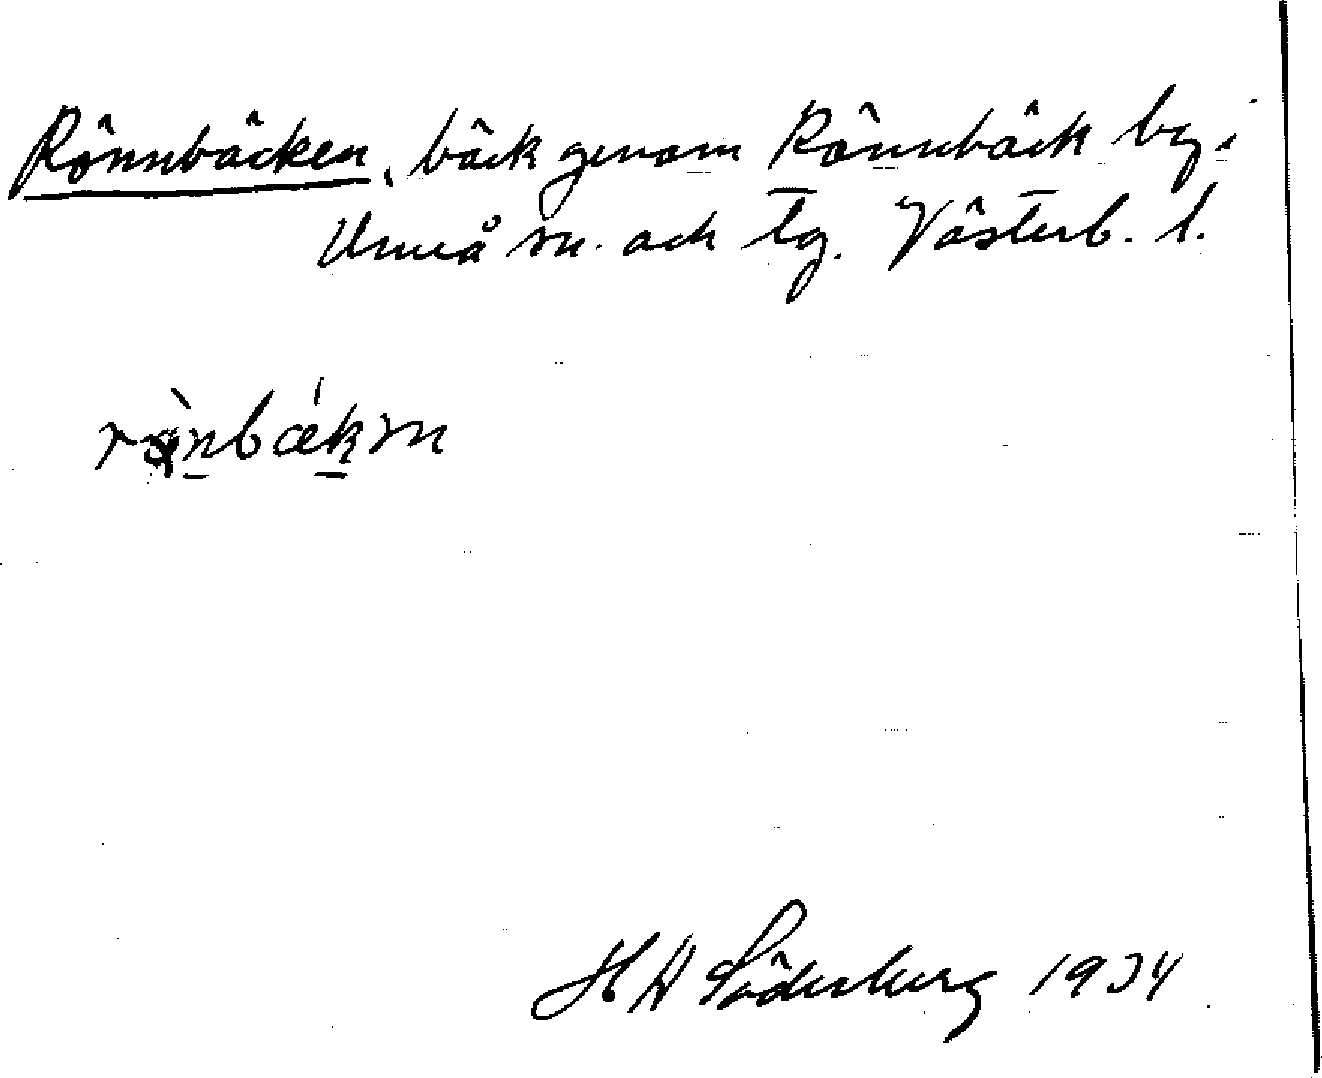 Rönnbäcken, bäck genom Rönnbäck by i
Umeå sn. och tg. Västerb. l.
rö̀nbækm
H W Söderberg 1934